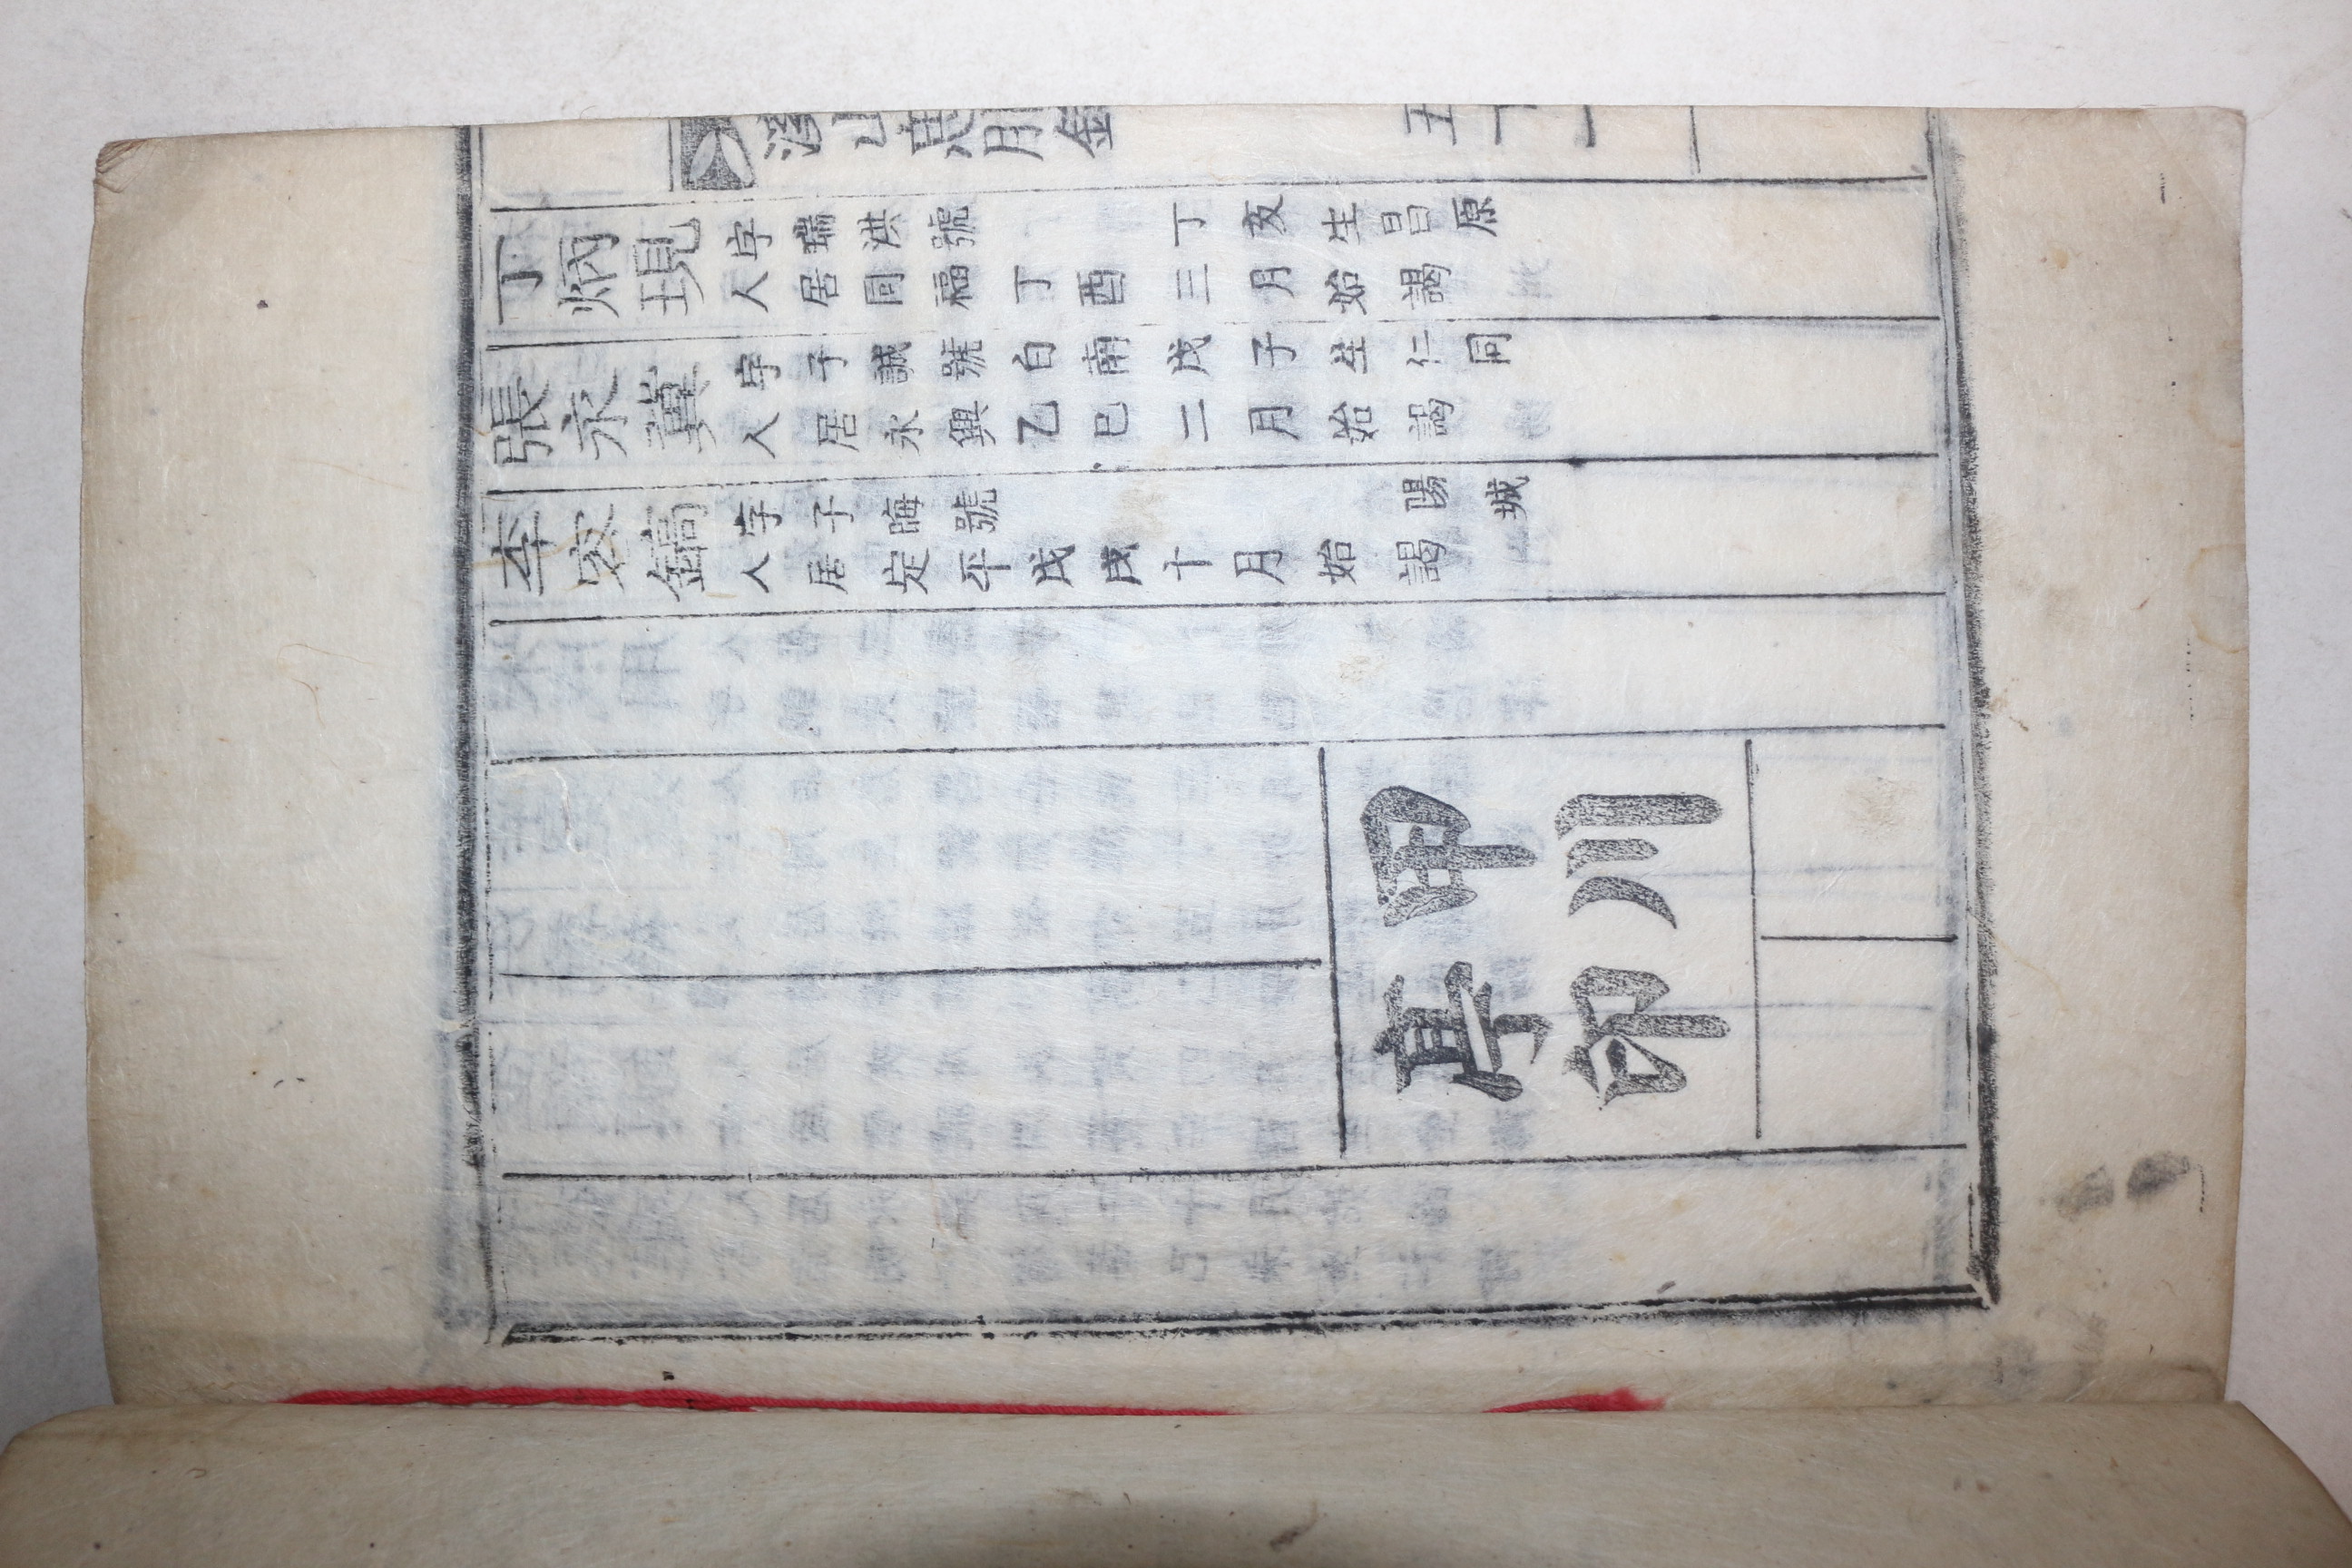 山 五十一
丁炳現
字瑞洪號 丁亥生昌原
人居同福丁酉三月始謁
張永
字子誠號白南戊子生仁同
人居永興乙巳二月始謁
李 鎬
字子晦號 陽城
人居定平戊戌十月始謁
川
亭印